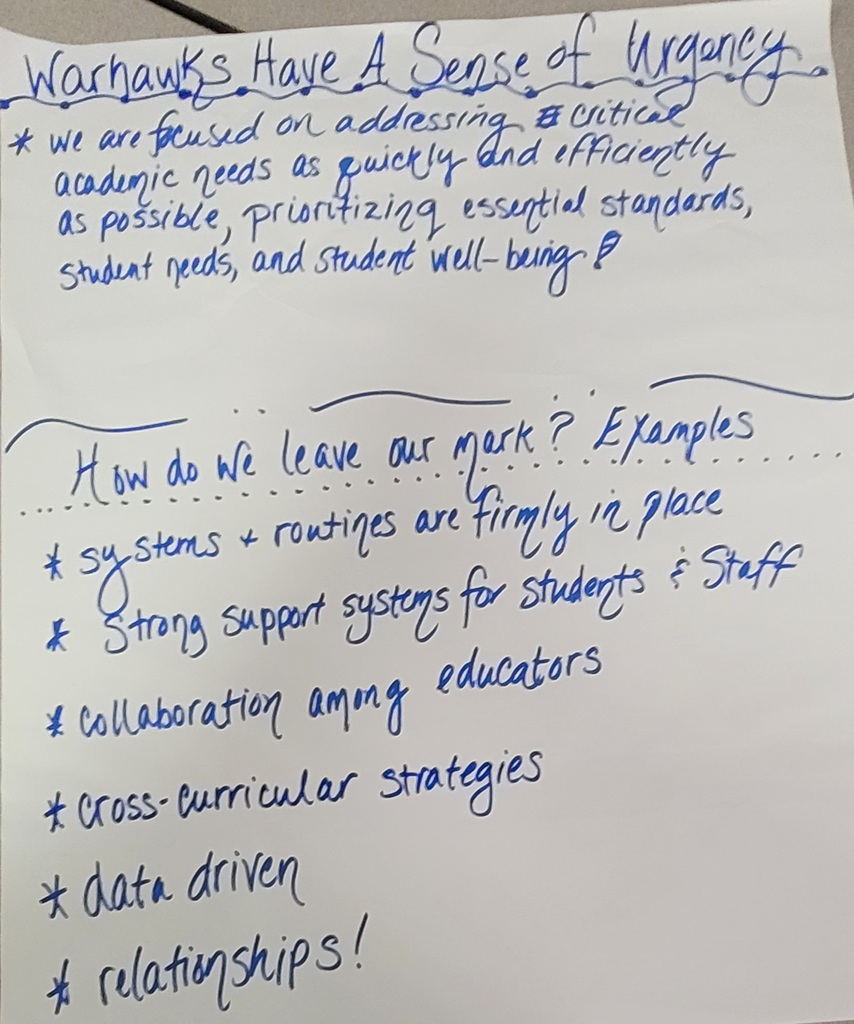 Warhawks Have A Sense of Urgency
* we are focused on addressing critical
academic needs as quickly and efficiently
as possible, prioritizing essential standards,
student needs, and student well-being!
How do we leave our mark? Examples
* systems + routines are firmly in place
* Strong support systems for students & Staff
* collaboration among educators
* cross-curricular strategies
* data driven
* relationships!